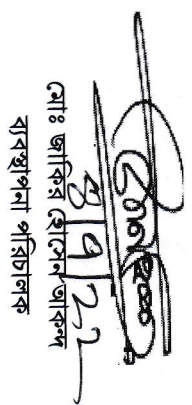 ৪|৭|২২
মোঃ জাকির হোসেন আকন্দ
ব্যবস্থাপনা পরিচালক